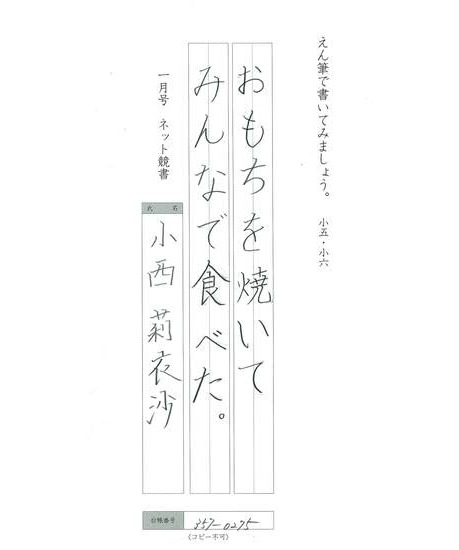 えん筆で書いてみましょう。 小五・小六
おもちを焼いて
みんなで食べた。
一月号 ネット競書
氏 名
小西 莉衣沙
台帳番号
357-0275
(コピー不可)